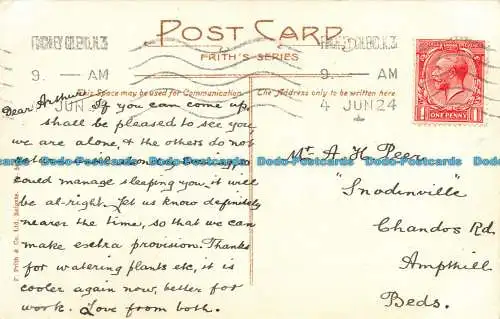 POST CARD
FRITH'S SERIES
FINCHLEY CH.END.N.3
9. - AM
4 JUN 24
9. - AM
JUN 24
This Space may be used for Communication
The Address only to be written here
ONE PENNY
Dear Arthur If you can come up,
shall be pleased to see you,
we are alone, & the others do not
return
could manage sleeping you, it will
be al-right. Let us know definitely
nearer the time, so that we can
make extra provision. Thanks
for watering plants etc, it is
cooler again now, better for
work. Love from both.
Mr A H Peer
"Snodinville"
Chandos Rd
Ampthill
Beds.
F. Frith & Co. Ltd., Reigate.
Dodo-Postcards Dodo-Postcards Dodo-Postcards Dodo-Postcards Dodo-Postcards